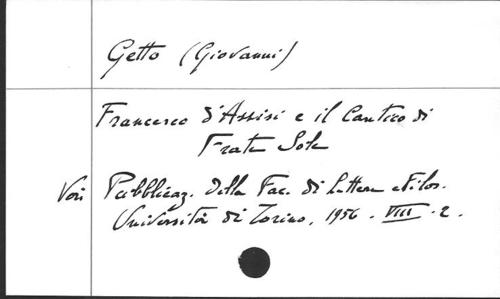 Getto (Giovanni)
Francesco d'Assisi e il Cantico di
Frate Sole
Voir Pubblicaz. della Fac. di Lettere e Filos.
Università di Torino, 1956. VIII. 2.